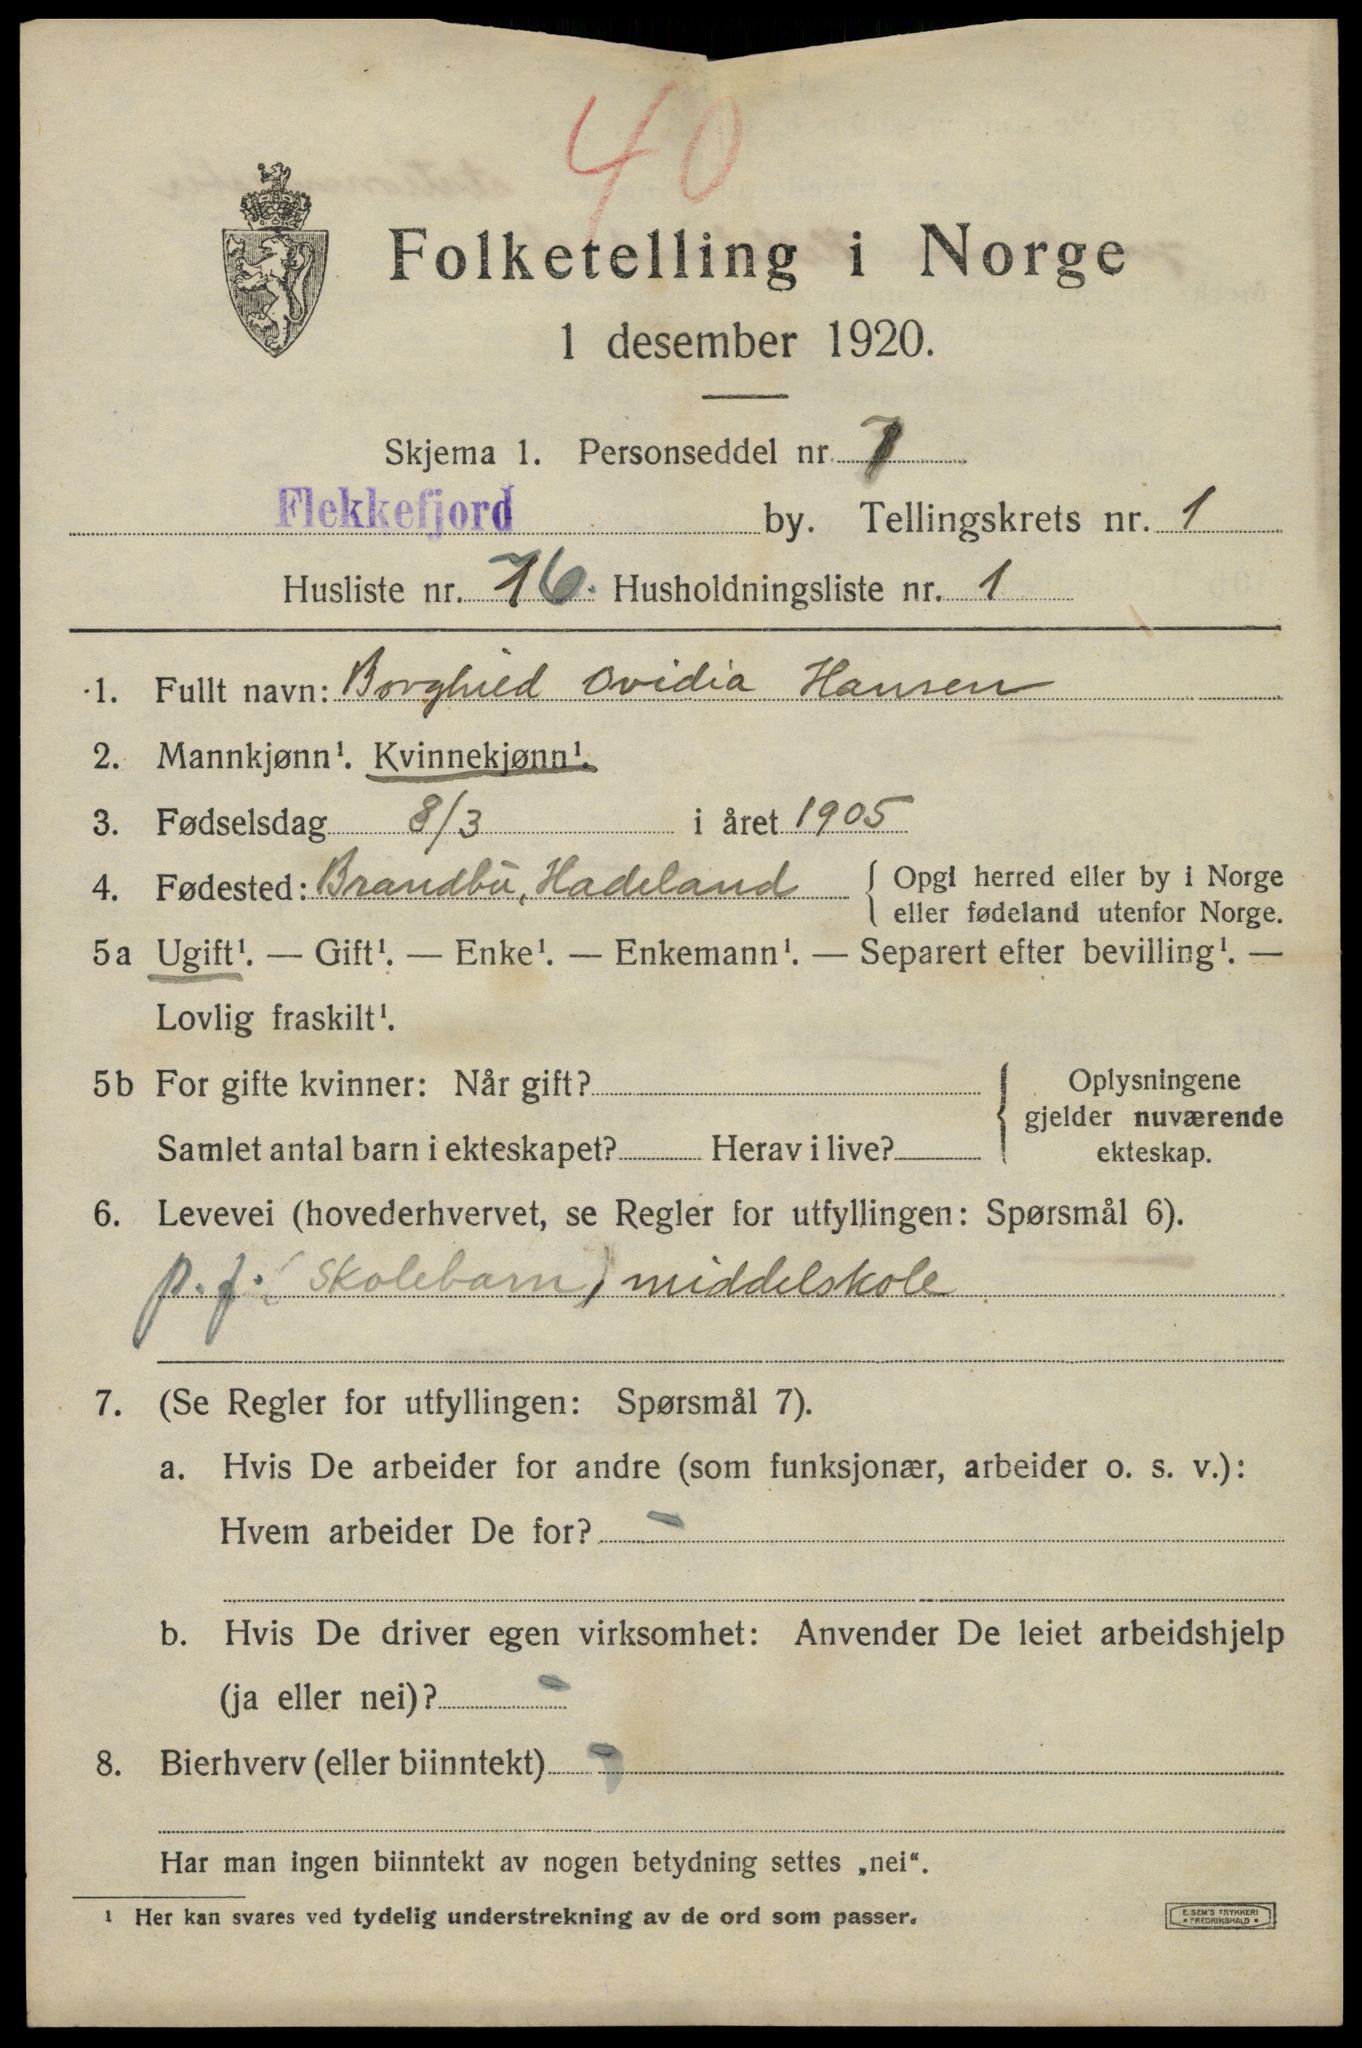 40
Folketelling i Norge
1 desember 1920.
Skjema 1. Personseddel nr. 7
Flekkefjord by. Tellingskrets nr. 1
Husliste nr. 76. Husholdningsliste nr. 1
1. Fullt navn: Borghild Ovidia Hansen
2. Mannkjønn¹. Kvinnekjønn¹.
3. Fødselsdag 8/3 i året 1905
4. Fødested: Brandbu, Hadeland { Opgi herred eller by i Norge
eller fødeland utenfor Norge.
5a Ugift¹. — Gift¹. — Enke¹. — Enkemann¹. — Separert efter bevilling¹. —
Lovlig fraskilt¹.
5b For gifte kvinner: Når gift?
Samlet antal barn i ekteskapet? Herav i live?
{ Oplysningene
gjelder nuværende
ekteskap.
6. Levevei (hovederhvervet, se Regler for utfyllingen: Spørsmål 6).
p. f. (Skolebarn) middelskole
7. (Se Regler for utfyllingen: Spørsmål 7).
a. Hvis De arbeider for andre (som funksjonær, arbeider o. s. v.):
Hvem arbeider De for? -
b. Hvis De driver egen virksomhet: Anvender De leiet arbeidshjelp
(ja eller nei)? -
8. Bierhverv (eller biinntekt)
Har man ingen biinntekt av nogen betydning settes „nei“.
¹ Her kan svares ved tydelig understrekning av de ord som passer.
E. SEM'S TRYKKERI
• FREDRIKSHALD •